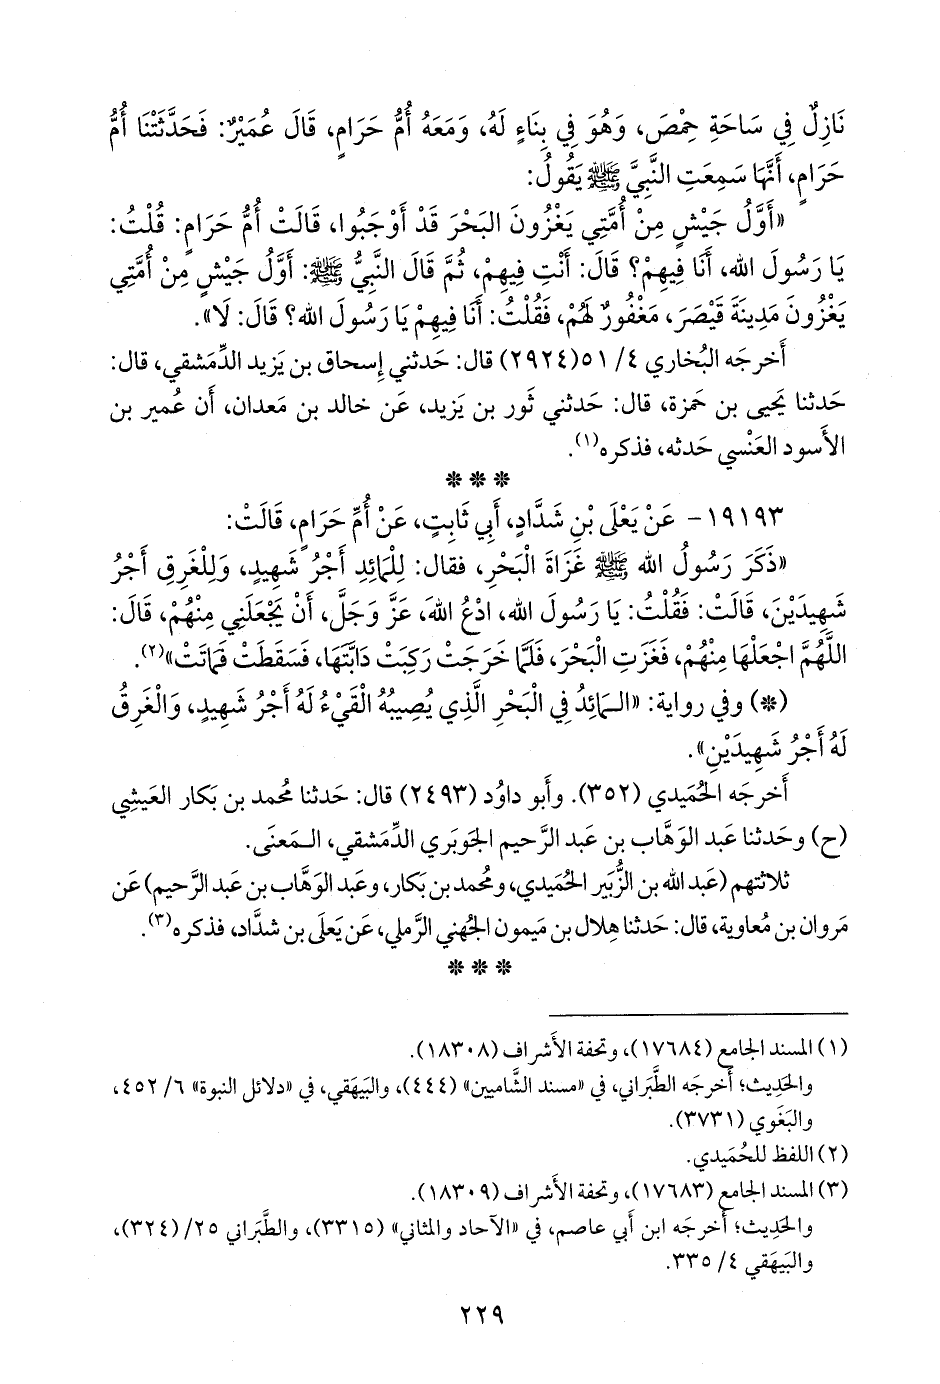 نَازِلٌ فِي سَاحَةِ حِمْصَ، وَهُوَ فِي بِنَاءٍ لَهُ، وَمَعَهُ أُمُّ حَرَامٍ، قَالَ عُمَيْرٌ: فَحَدَّثَتْنَا أُمُّ
حَرَامٍ، أَنَّهَا سَمِعَتِ النَّبِيَّ ﷺ يَقُولُ:
«أَوَّلُ جَيْشٍ مِنْ أُمَّتِي يَغْزُونَ البَحْرَ قَدْ أَوْجَبُوا، قَالَتْ أُمُّ حَرَامٍ: قُلْتُ:
يَا رَسُولَ الله، أَنَا فِيهِمْ؟ قَالَ: أَنْتِ فِيهِمْ، ثُمَّ قَالَ النَّبِيُّ ﷺ: أَوَّلُ جَيْشٍ مِنْ أُمَّتِي
يَغْزُونَ مَدِينَةَ قَيْصَرَ، مَغْفُورٌ لَهُمْ، فَقُلْتُ: أَنَا فِيهِمْ يَا رَسُولَ الله؟ قَالَ: لَا».
أَخرجَه البُخاري ٤/ ٥١(٢٩٢٤) قال: حَدثني إِسحاق بن يَزيد الدِّمَشقي، قال:
حَدثنا يَحيى بن حَمزة، قال: حَدثني ثَور بن يَزيد، عَن خالد بن مَعدان، أَن عُمير بن
الأَسود العَنْسي حَدثه، فذكره(١).
* * *
١٩١٩٣- عَنْ يَعْلَى بْنِ شَدَّادٍ، أَبِي ثَابِتٍ، عَنْ أُمِّ حَرَامٍ، قَالَتْ:
«ذَكَرَ رَسُولُ الله ﷺ غَزَاةَ الْبَحْرِ، فقال: لِلْمَائِدِ أَجْرُ شَهِيدٍ، وَلِلْغَرِقِ أَجْرُ
شَهِيدَيْنِ، قَالَتْ: فَقُلْتُ: يَا رَسُولَ الله، ادْعُ اللهَ، عَزَّ وَجَلَّ، أَنْ يَجْعَلَنِي مِنْهُمْ، قَالَ:
اللَّهُمَّ اجْعَلْهَا مِنْهُمْ، فَغَزَتِ الْبَحْرَ، فَلَمَّا خَرَجَتْ رَكِبَتْ دَابَّتَهَا، فَسَقَطَتْ فَمَاتَتْ»(٢).
(*) وفي رواية: «الـمَائِدُ فِي الْبَحْرِ الَّذِي يُصِيبُهُ الْقَيْءُ لَهُ أَجْرُ شَهِيدٍ، وَالْغَرِقُ
لَهُ أَجْرُ شَهِيدَيْنِ».
أَخرجَه الحُمَيدي (٣٥٢). وأَبو داوُد (٢٤٩٣) قال: حَدثنا مُحمد بن بَكار العَيشِي
(ح) وحَدثنا عَبد الوَهَّاب بن عَبد الرَّحيم الجَوبَري الدِّمَشقي، الـمَعنَى.
ثلاثتهم (عَبد الله بن الزُّبَير الحُمَيدي، ومُحمد بن بَكار، وعَبد الوَهَّاب بن عَبد الرَّحيم) عَن
مَروان بن مُعاوية، قال: حَدثنا هِلال بن مَيمون الجُهني الرَّملي، عَن يَعلَى بن شَدَّاد، فذكره(٣).
* * *
(١) المسند الجامع (١٧٦٨٤)، وتحفة الأَشراف (١٨٣٠٨).
والحَدِيث؛ أَخرجَه الطَّبَراني، في «مسند الشَّاميين» (٤٤٤)، والبَيهَقي، في «دلائل النبوة» ٦/ ٤٥٢،
والبَغَوي (٣٧٣١).
(٢) اللفظ للحُمَيدي.
(٣) المسند الجامع (١٧٦٨٣)، وتحفة الأَشراف (١٨٣٠٩).
والحَدِيث؛ أَخرجَه ابن أَبي عاصم، في «الآحاد والمثاني» (٣٣١٥)، والطَّبَراني ٢٥/ (٣٢٤)،
والبَيهَقي ٤/ ٣٣٥.
٢٢٩